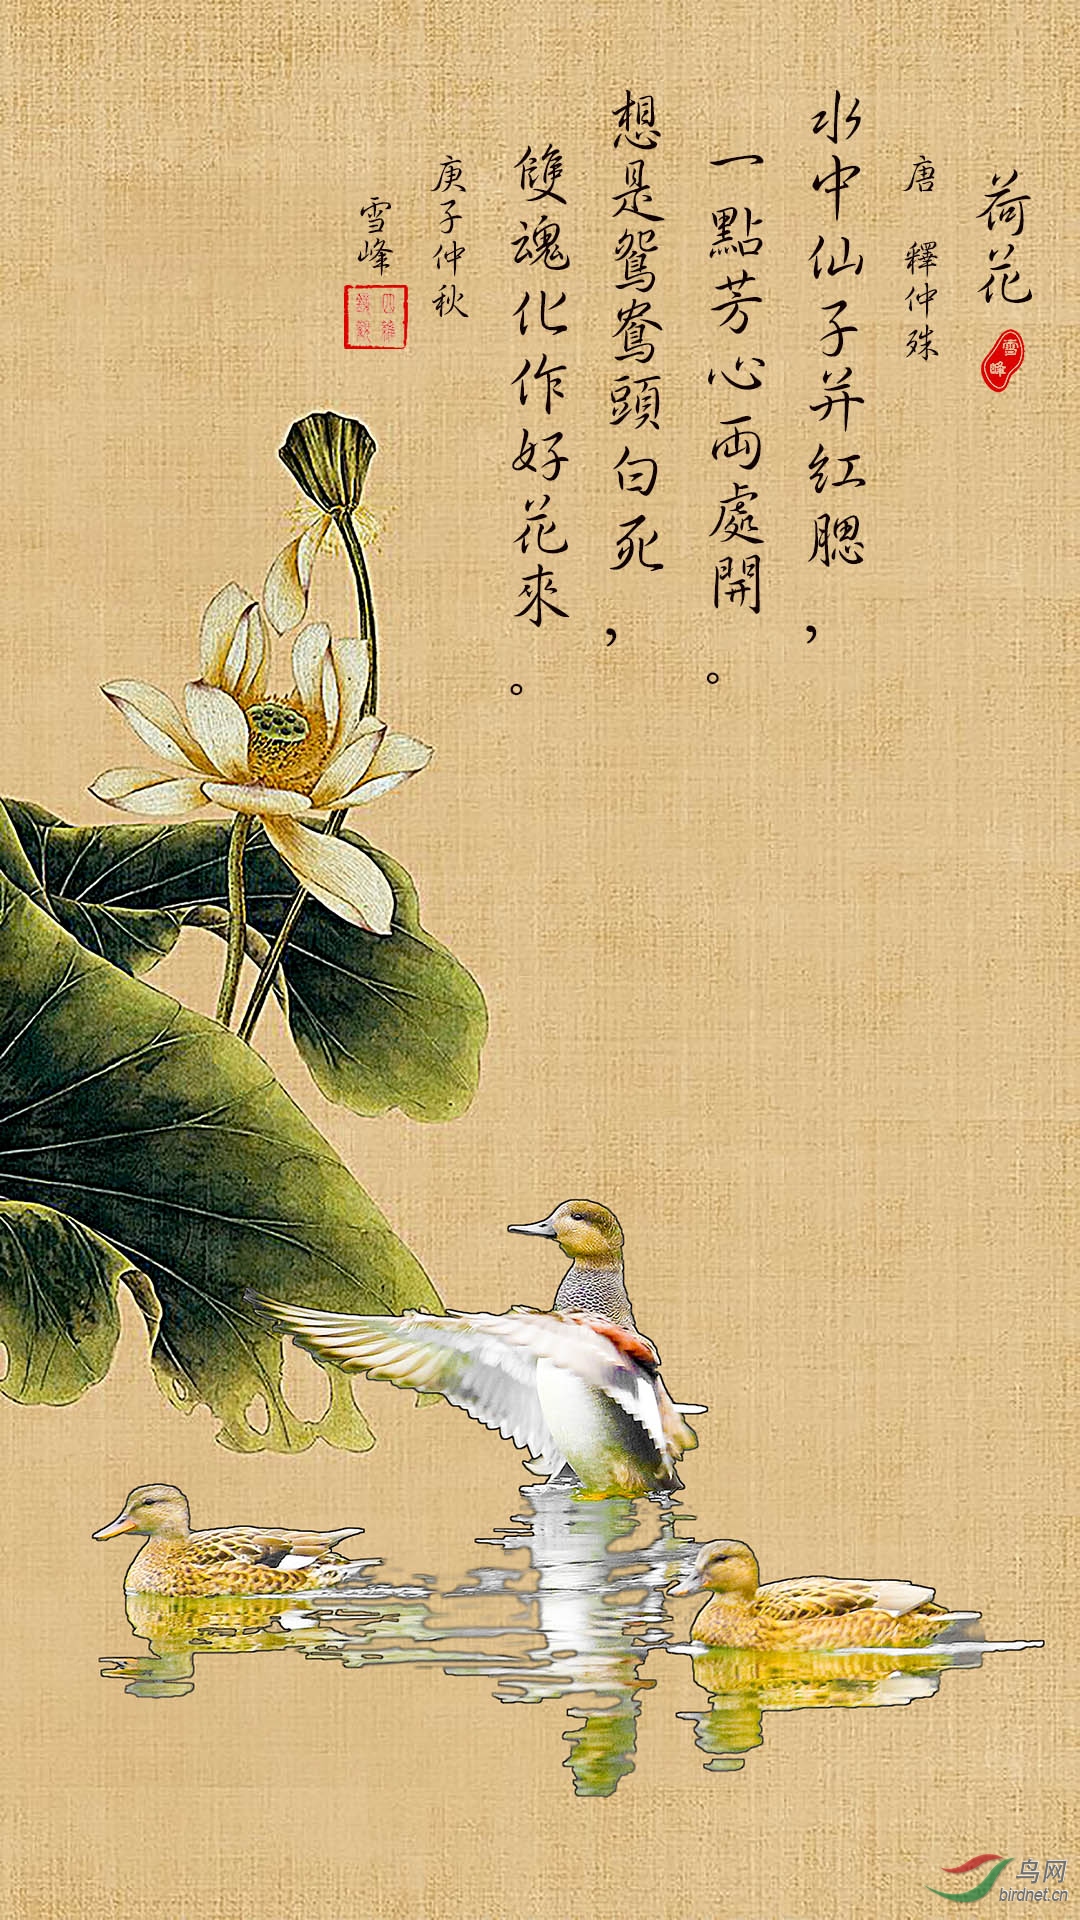 荷花
雪峰
唐 釋仲殊
水中仙子并红腮，
一點芳心両處開。
想是鴛鴦頭白死，
雙魂化作好花來。
庚子仲秋
雪峰
鸟网
birdnet.cn